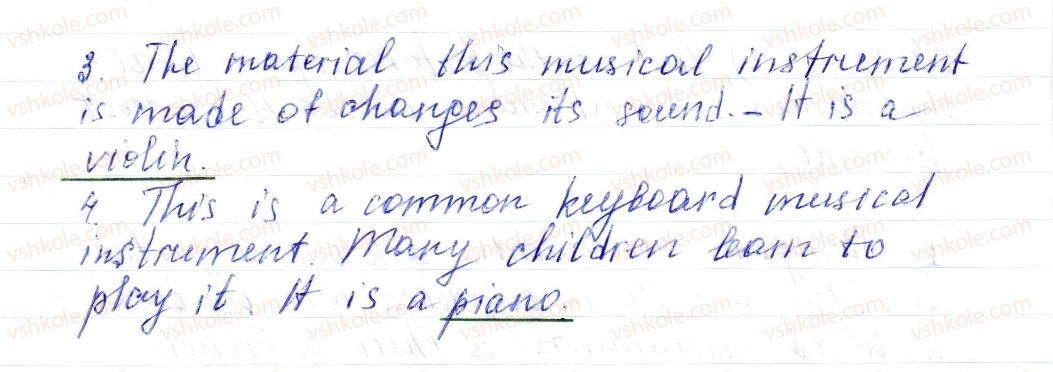 3. The material this musical instrument
is made of changes its sound. - It is a
violin.
4. This is a common keyboard musical
instrument. Many children learn to
play it. It is a piano.